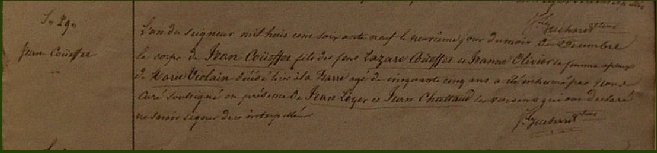 Jean Coüeffer
L'an du seigneur mil huit cent soixante neuf le neuvième jour du mois de Décembre
le corps de Jean Coüeffer fils des feus Lazare Coüeffer et Jeanne Olivier sa femme époux
de Marie Violain décédé hier à la Barre agé de cinquante cinq ans a été inhumé par nous
Curé soussigné en présence de Jean Léger et Jean Chattaud les parens qui ont déclaré
ne savoir signer de ce interpellés